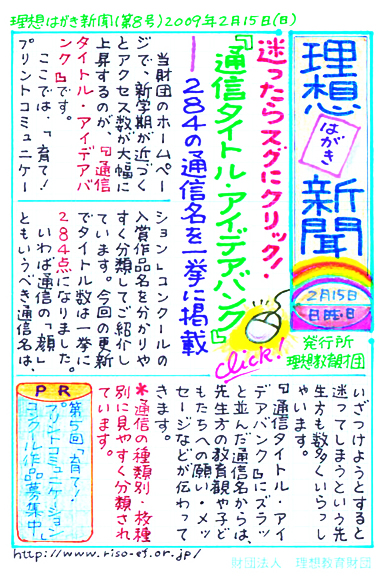 理想はがき新聞(第8号)2009年2月15日(日)
理想
はがき
新聞
2月15日
日曜日
発行所
理想教育財団
迷ったらスグにクリック!
『通信タイトル・アイデアバンク』
──284の通信名を一挙に掲載
click!
当財団のホームペー
ジで、新学期が近づく
とアクセス数が大幅に
上昇するのが、『通信
タイトル・アイデアバ
ンク』です。
ここでは、「育て!
プリントコミュニケー
ション」コンクールの
入賞作品名を分かりや
すく分類してご紹介し
ています。今回の更新
でタイトル数は一挙に
284点になりました。
いわば通信の「顔」
ともいうべき通信名は、
いざつけようとすると
迷ってしまうという先
生方も数多くいらっし
ゃいます。
『通信タイトル・アイ
デアバンク』にズラッ
と並んだ通信名からは、
先生方の教育観や子ど
もたちへの願い・メッ
セージなどが伝わって
きます。
*通信の種類別・校種
別に見やすく分類され
ています。
PR
第5回「育て!
プリントコミュニケーション」
コンクール作品募集中
http://www.riso-ef.or.jp/
財団法人 理想教育財団